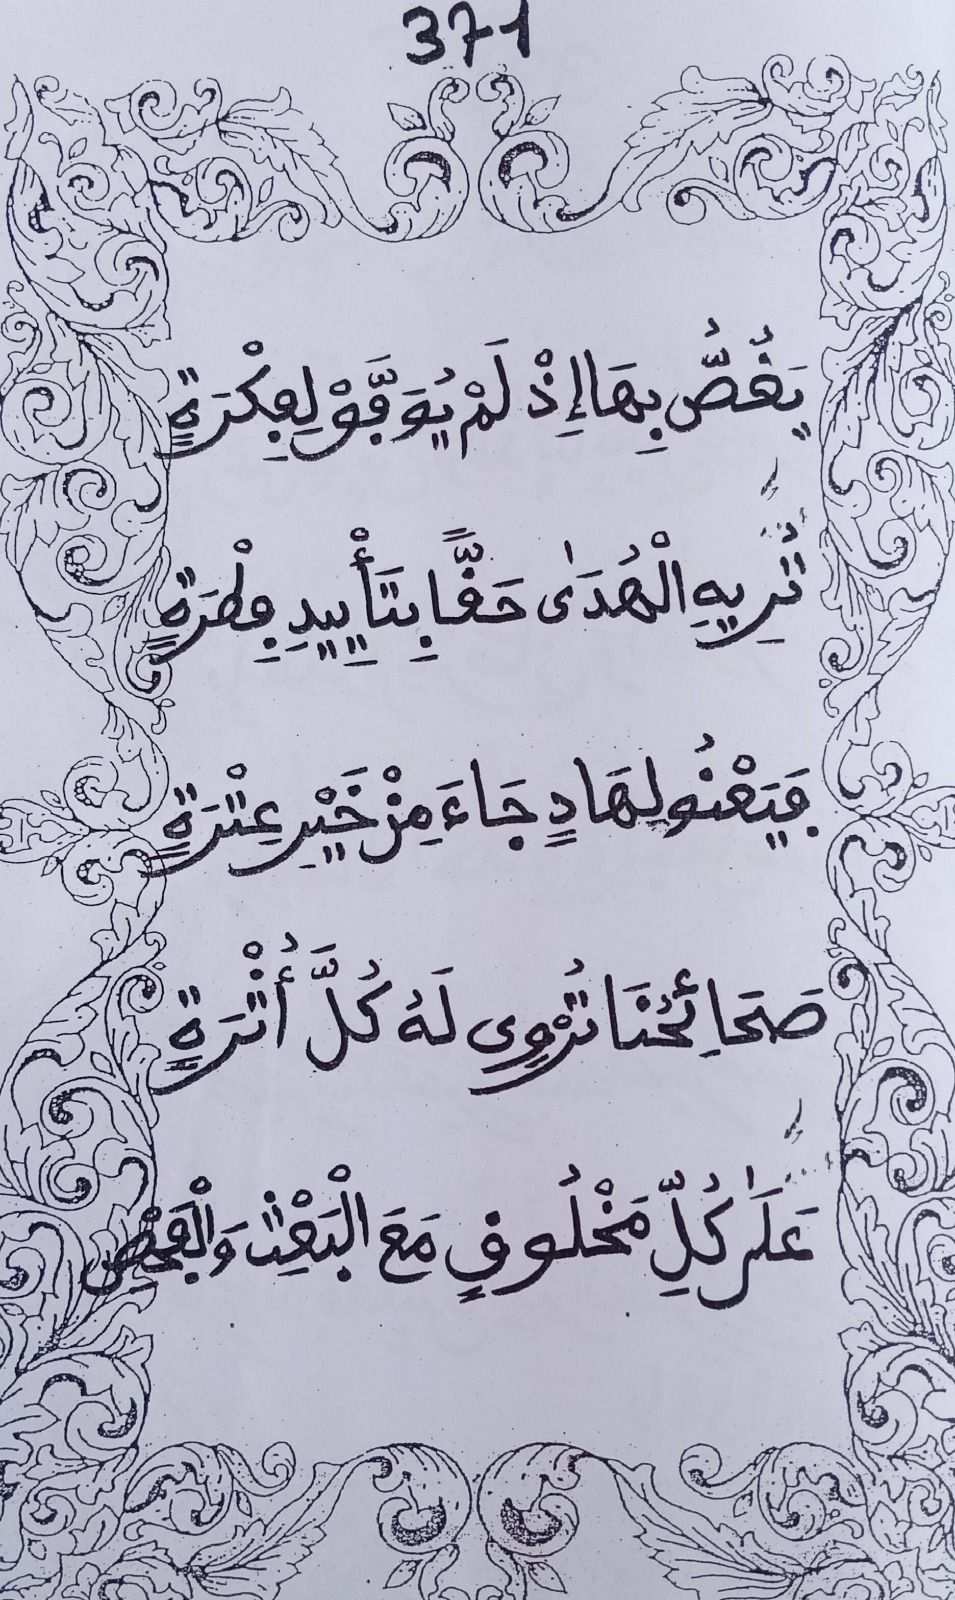 371
يَغُصُّ بِهَا إِذْ لَمْ يُوَفَّقْ لِفِكْرَةٍ
تُرِيهِ الْهُدَى حَقًّا بِتَأْيِيدِ فِطْرَةٍ
فَيَعْنُو لِهَادٍ جَاءَ مِنْ خَيْرِ عِتْرَةٍ
صَحَائِحُنَا تَرْوِي لَهُ كُلَّ أُثْرَةٍ
عَلَى كُلِّ مَخْلُوقٍ مَعَ الْبَعْثِ وَالْفَحْصِ